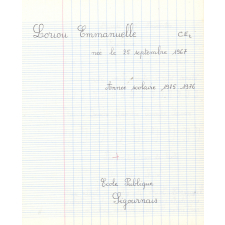 Louou Emmanuelle CE2
née le 25 septembre 1967
Année scolaire 1975 1976
Ecole Publique
Sejournais